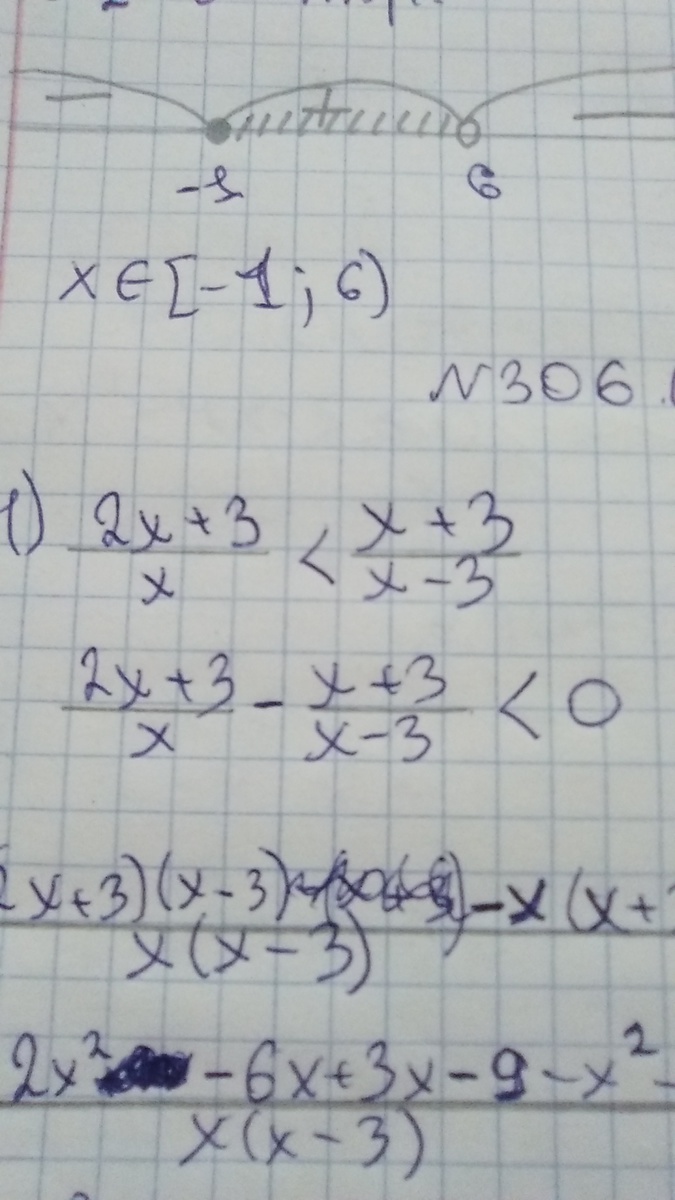 − + −
-1 6
x ∈ [-1; 6)
N306.
1) (2x+3)/x < (x+3)/(x-3)
(2x+3)/x - (x+3)/(x-3) < 0
2x+3)(x-3) -x(x+
x(x-3)
2x² -6x+3x-9-x²-
x(x-3)